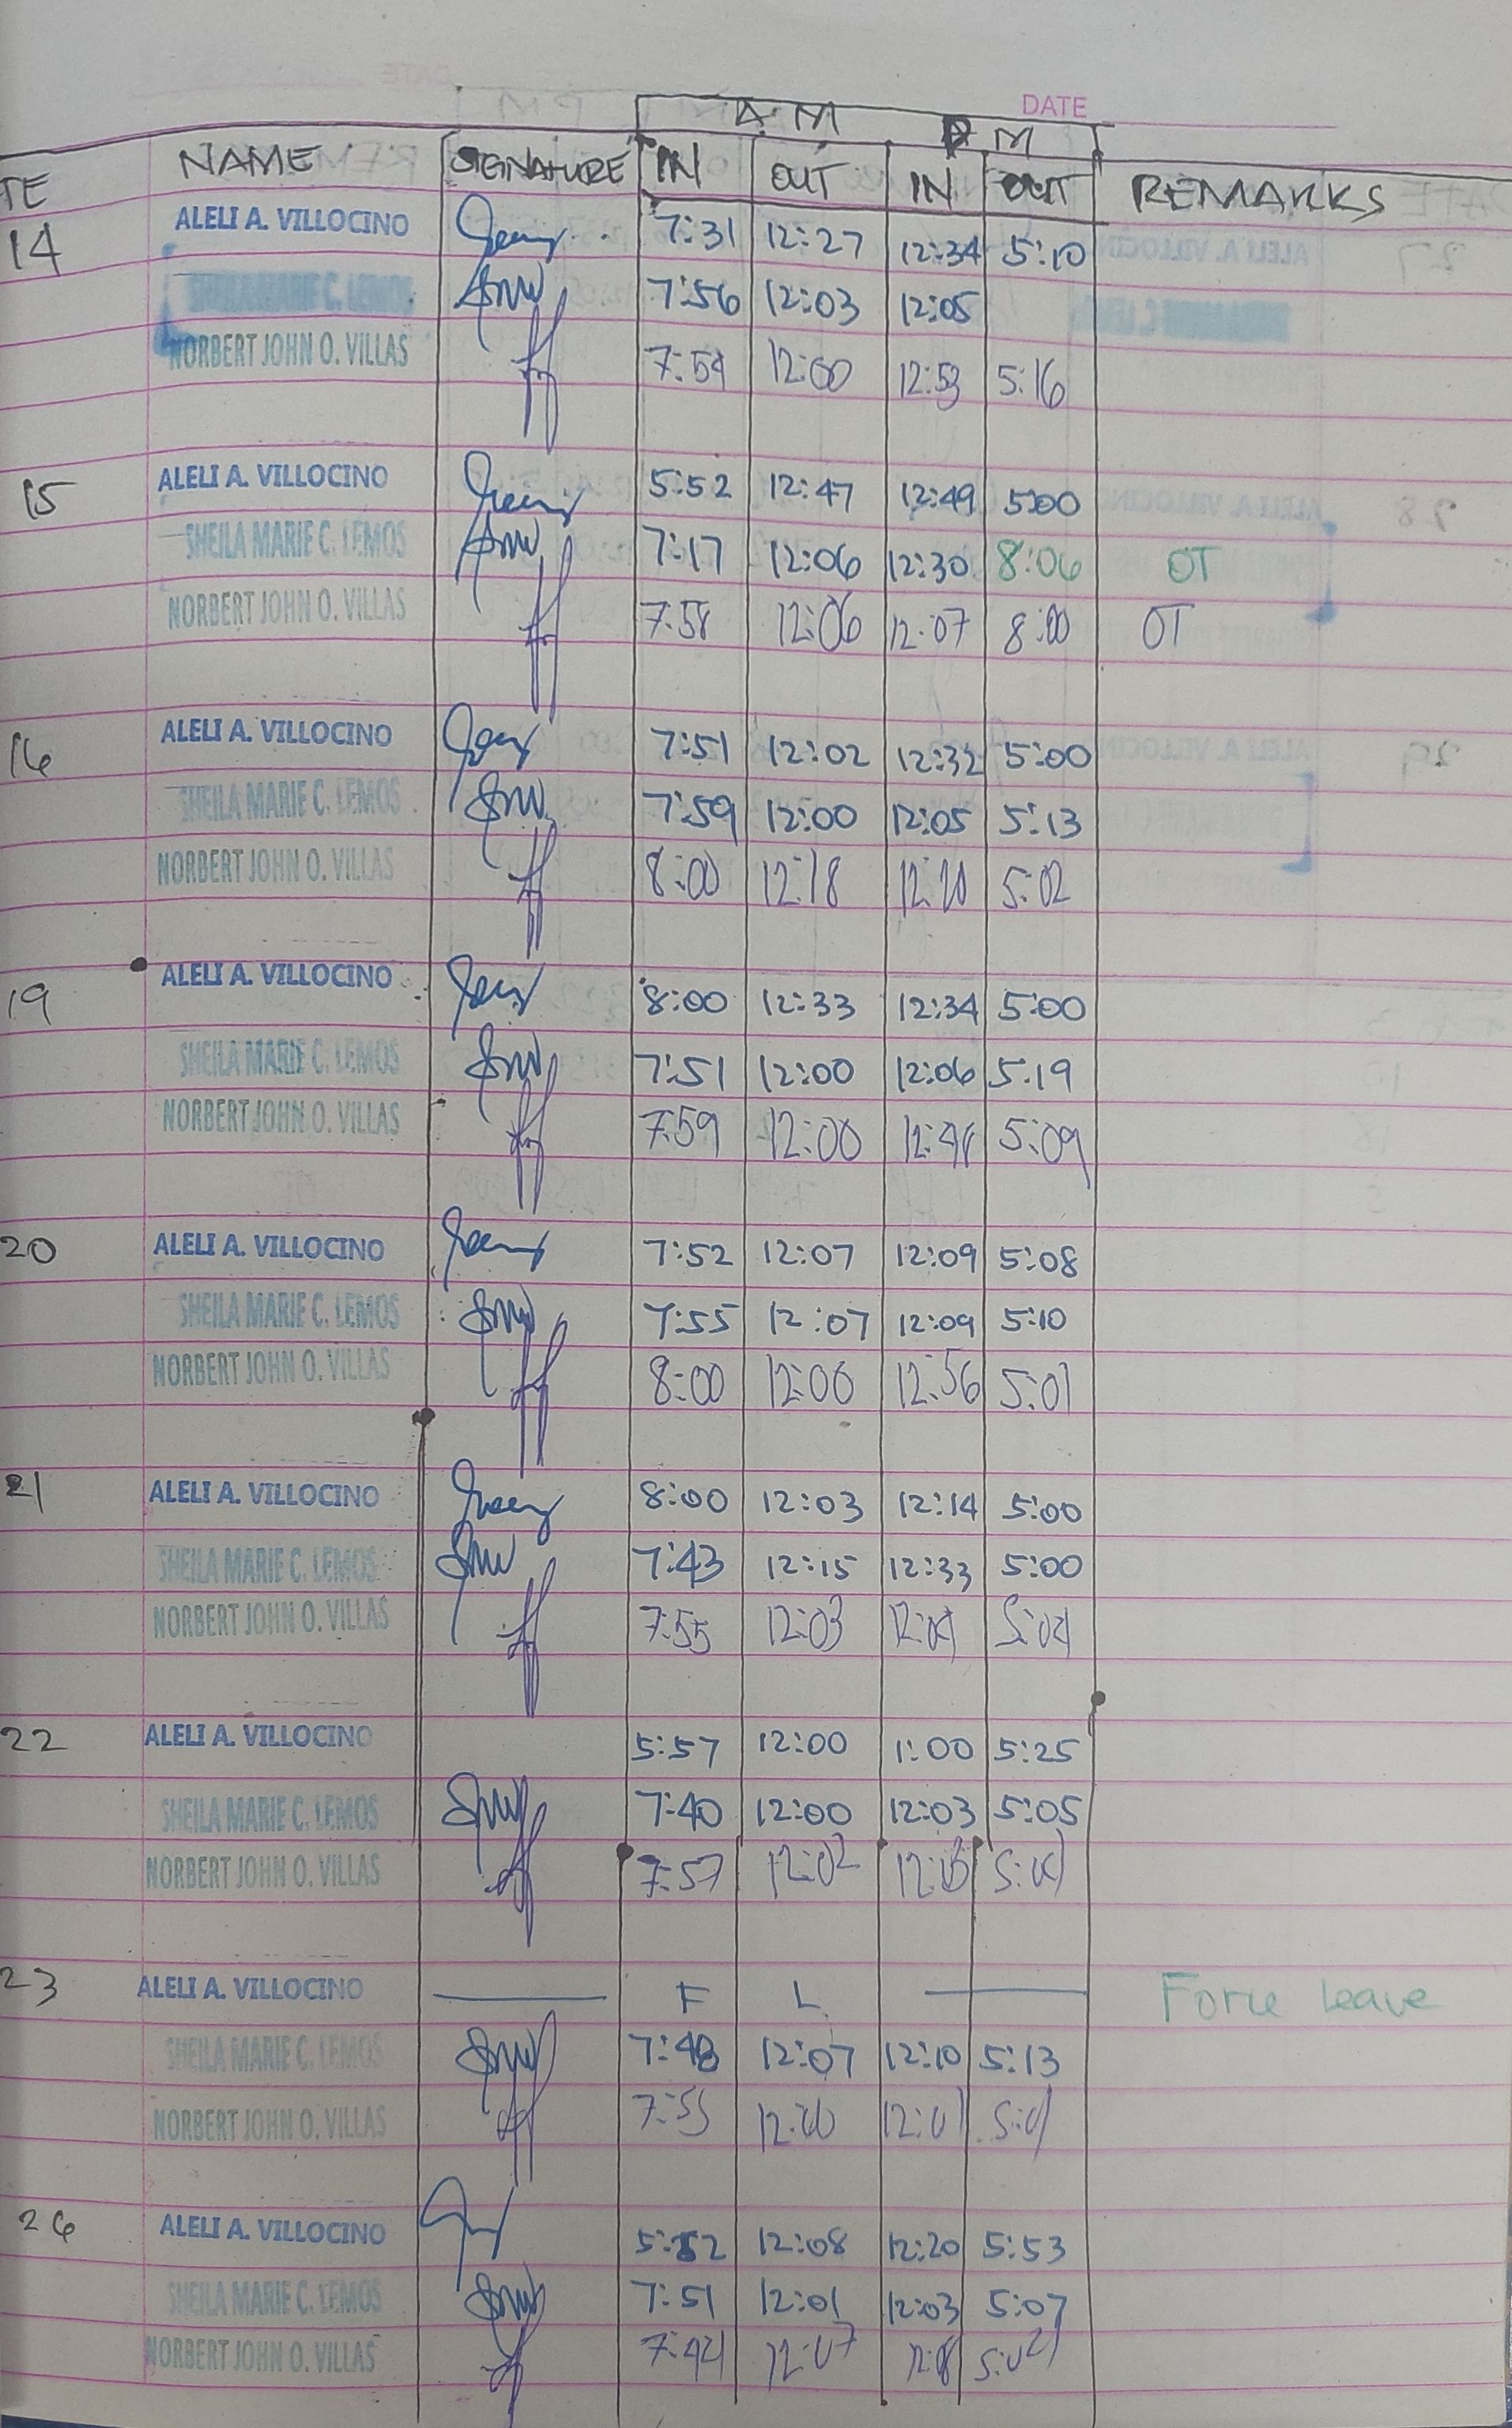 DATE
AM PM
TE NAME SIGNATURE IN OUT IN OUT REMARKS
14 ALELI A. VILLOCINO 7:31 12:27 12:34 5:10
SHEILA MARIE C. LEMOS 7:56 12:03 12:05
NORBERT JOHN O. VILLAS 7:59 12:00 12:53 5:16
15 ALELI A. VILLOCINO 5:52 12:47 12:49 5:00
SHEILA MARIE C. LEMOS 7:17 12:06 12:30 8:06 OT
NORBERT JOHN O. VILLAS 7:58 12:06 12:07 8:00 OT
16 ALELI A. VILLOCINO 7:51 12:02 12:32 5:00
SHEILA MARIE C. LEMOS 7:59 12:00 12:05 5:13
NORBERT JOHN O. VILLAS 8:00 12:18 12:20 5:02
19 ALELI A. VILLOCINO 8:00 12:33 12:34 5:00
SHEILA MARIE C. LEMOS 7:51 12:00 12:06 5:19
NORBERT JOHN O. VILLAS 7:59 12:00 5:09
20 ALELI A. VILLOCINO 7:52 12:07 12:09 5:08
SHEILA MARIE C. LEMOS 7:55 12:07 12:09 5:10
NORBERT JOHN O. VILLAS 8:00 12:00 12:56 5:01
21 ALELI A. VILLOCINO 8:00 12:03 12:14 5:00
SHEILA MARIE C. LEMOS 7:43 12:15 12:33 5:00
NORBERT JOHN O. VILLAS 7:55 12:03 12:04 5:04
22 ALELI A. VILLOCINO 5:57 12:00 1:00 5:25
SHEILA MARIE C. LEMOS 7:40 12:00 12:03 5:05
NORBERT JOHN O. VILLAS 7:57 12:02
23 ALELI A. VILLOCINO F L Force leave
SHEILA MARIE C. LEMOS 7:48 12:07 12:10 5:13
NORBERT JOHN O. VILLAS 7:55 12:00 12:01 5:01
26 ALELI A. VILLOCINO 5:52 12:08 12:20 5:53
SHEILA MARIE C. LEMOS 7:51 12:01 12:03 5:07
NORBERT JOHN O. VILLAS 12:07